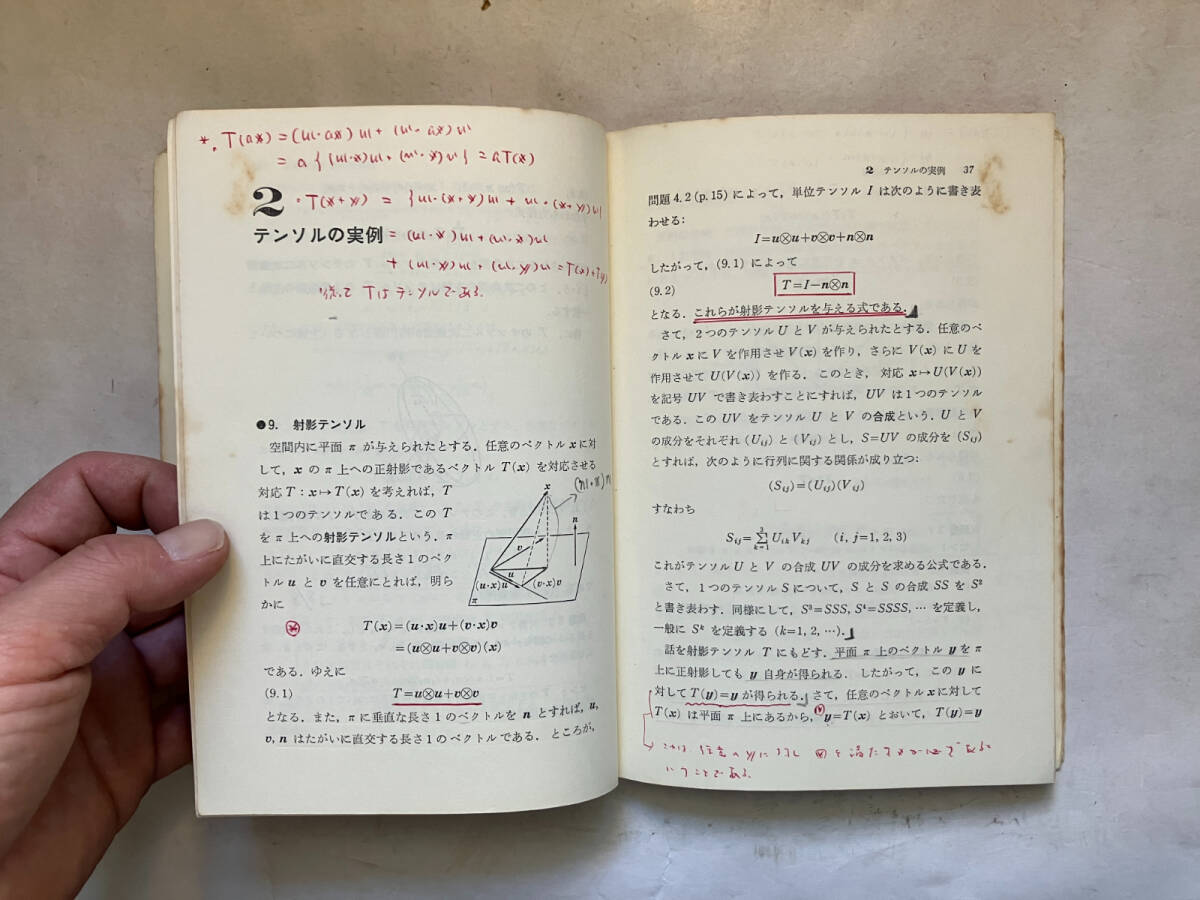 *. T(ax) = (u・ax)u + (v・ax)v
= a{(u・x)u + (v・x)v} = aT(x)
2
・T(x+y) = {u・(x+y)u + u・(x+y)u}
テンソルの実例
= (u・x)u + (u・x)u
+ (u・y)u + (u・y)u = T(x)+T(y)
従って Tはテンソルである.
●9. 射影テンソル
空間内に平面 π が与えられたとする．任意のベクトル x に対
して，x の π 上への正射影であるベクトル T(x) を対応させる
対応 T：x↦T(x) を考えれば，T
は1つのテンソルである．この T
を π 上への射影テンソルという．π
上にたがいに直交する長さ1のベク
トル u と v を任意にとれば，明ら
かに
x
(n・x)n
n
v
u
(u・x)u
(v・x)v
π
T(x)=(u・x)u+(v・x)v
=(u⊗u+v⊗v)(x)
である．ゆえに
(9.1) T=u⊗u+v⊗v
となる．また，π に垂直な長さ1のベクトルを n とすれば，u,
v, n はたがいに直交する長さ1のベクトルである．ところが，
2 テンソルの実例 37
問題 4.2 (p.15) によって，単位テンソル I は次のように書き表
わせる：
I=u⊗u+v⊗v+n⊗n
したがって，(9.1) によって
(9.2) T=I−n⊗n
となる．これらが射影テンソルを与える式である．
さて，2つのテンソル U と V が与えられたとする．任意のベ
クトル x に V を作用させ V(x) を作り，さらに V(x) に U を
作用させて U(V(x)) を作る．このとき，対応 x↦U(V(x))
を記号 UV で書き表わすことにすれば，UV は1つのテンソル
である．この UV をテンソル U と V の合成という．U と V
の成分をそれぞれ (Uij) と (Vij) とし，S=UV の成分を (Sij)
とすれば，次のように行列に関する関係が成り立つ：
(Sij)=(Uij)(Vij)
すなわち
Sij=∑_{k=1}^{3} Uik Vkj (i, j=1, 2, 3)
これがテンソル U と V の合成 UV の成分を求める公式である．
さて，1つのテンソル S について，S と S の合成 SS を S²
と書き表わす．同様にして，S³=SSS, S⁴=SSSS, … を定義し，
一般に Sᵏ を定義する (k=1, 2, …)．
話を射影テンソル T にもどす．平面 π 上のベクトル y を π
上に正射影しても y 自身が得られる．したがって，この y に
対して T(y)=y が得られる．さて，任意のベクトル x に対して
T(x) は平面 π 上にあるから，y=T(x) とおいて，T(y)=y
これは 任意の y に対し を満たす である
いうことである.